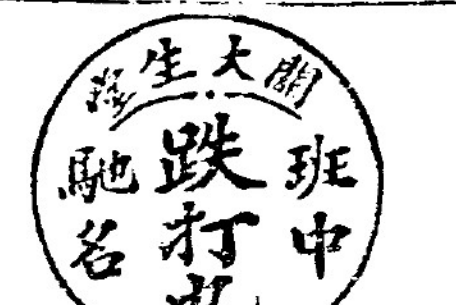 關大生
班中
跌打
馳名